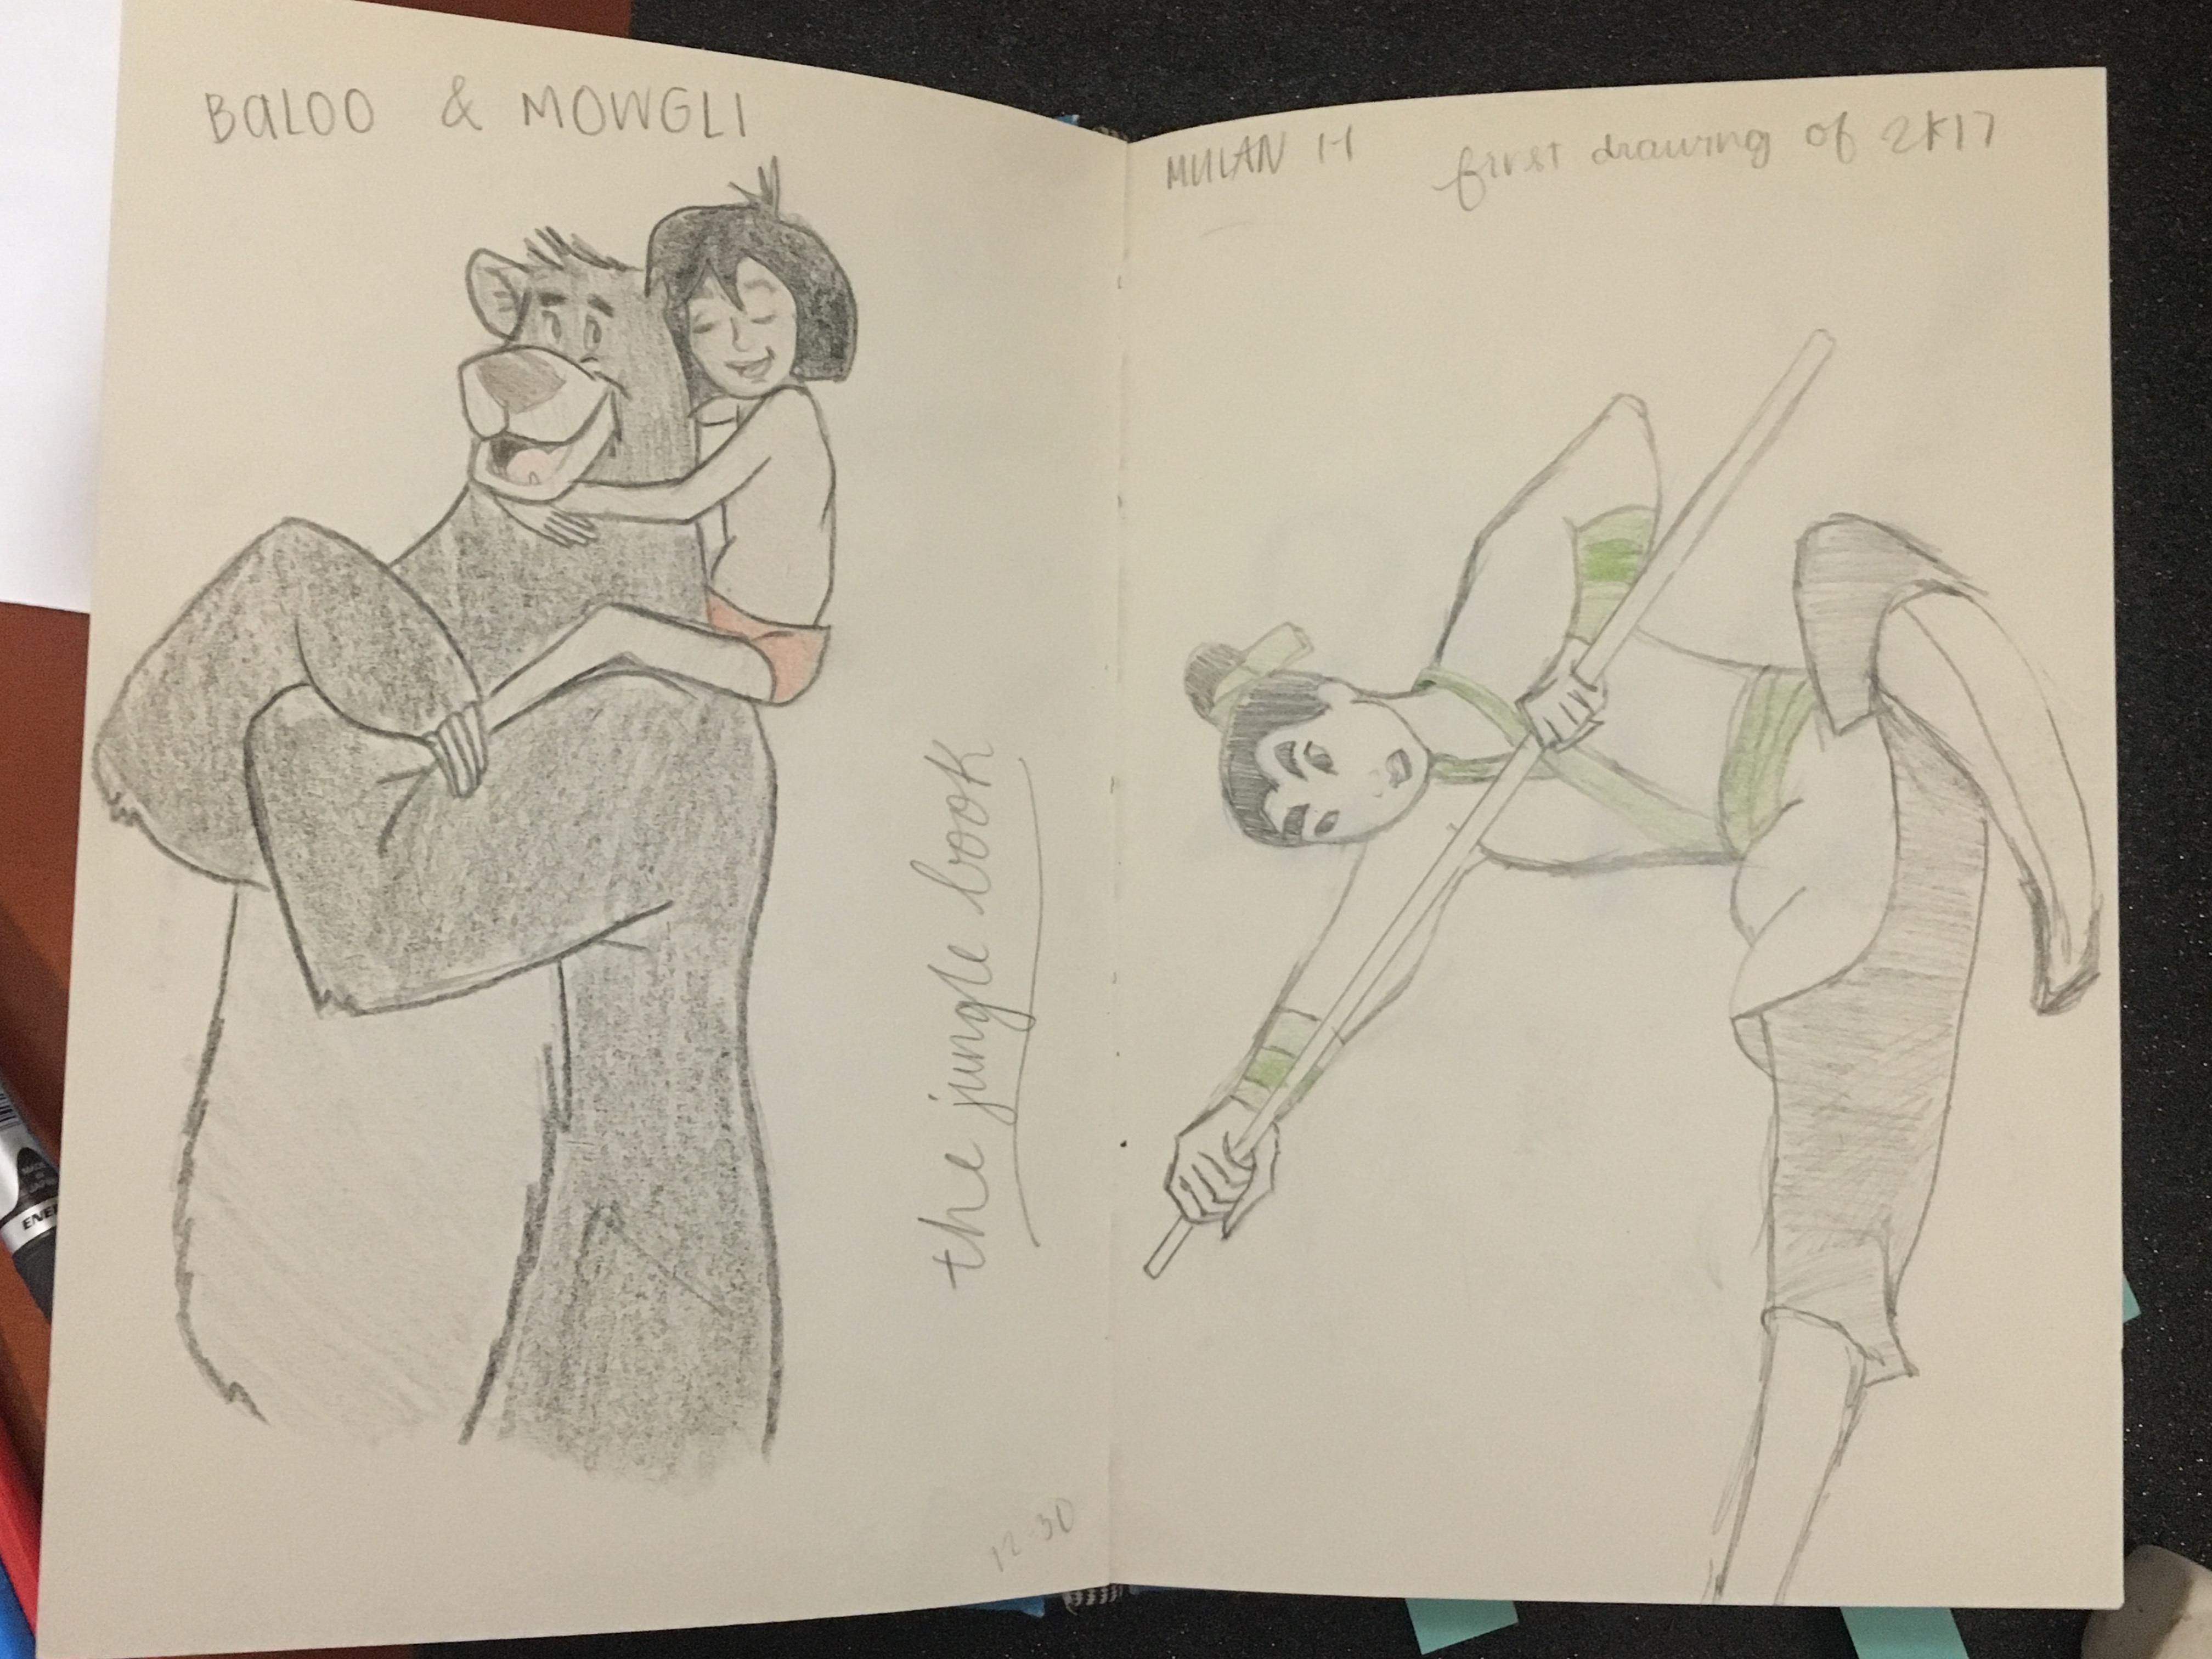 BALOO & MOWGLI
the jungle book
12-30
MULAN 1-1
first drawing of 2K17
ENER